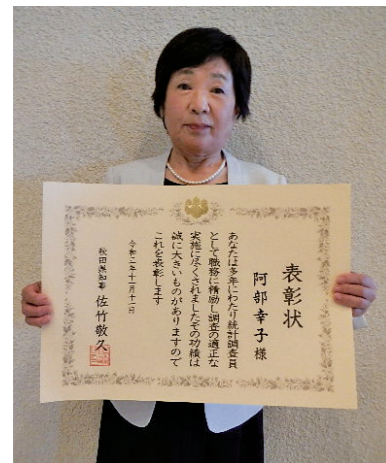 表彰状
阿部幸子様
あなたは多年にわたり統計調査員
として職務に精励し調査の適正な
実施に尽くされましたその功績は
誠に大きいものがありますので
これを表彰します
令和二年十一月十一日
秋田県知事 佐竹敬久